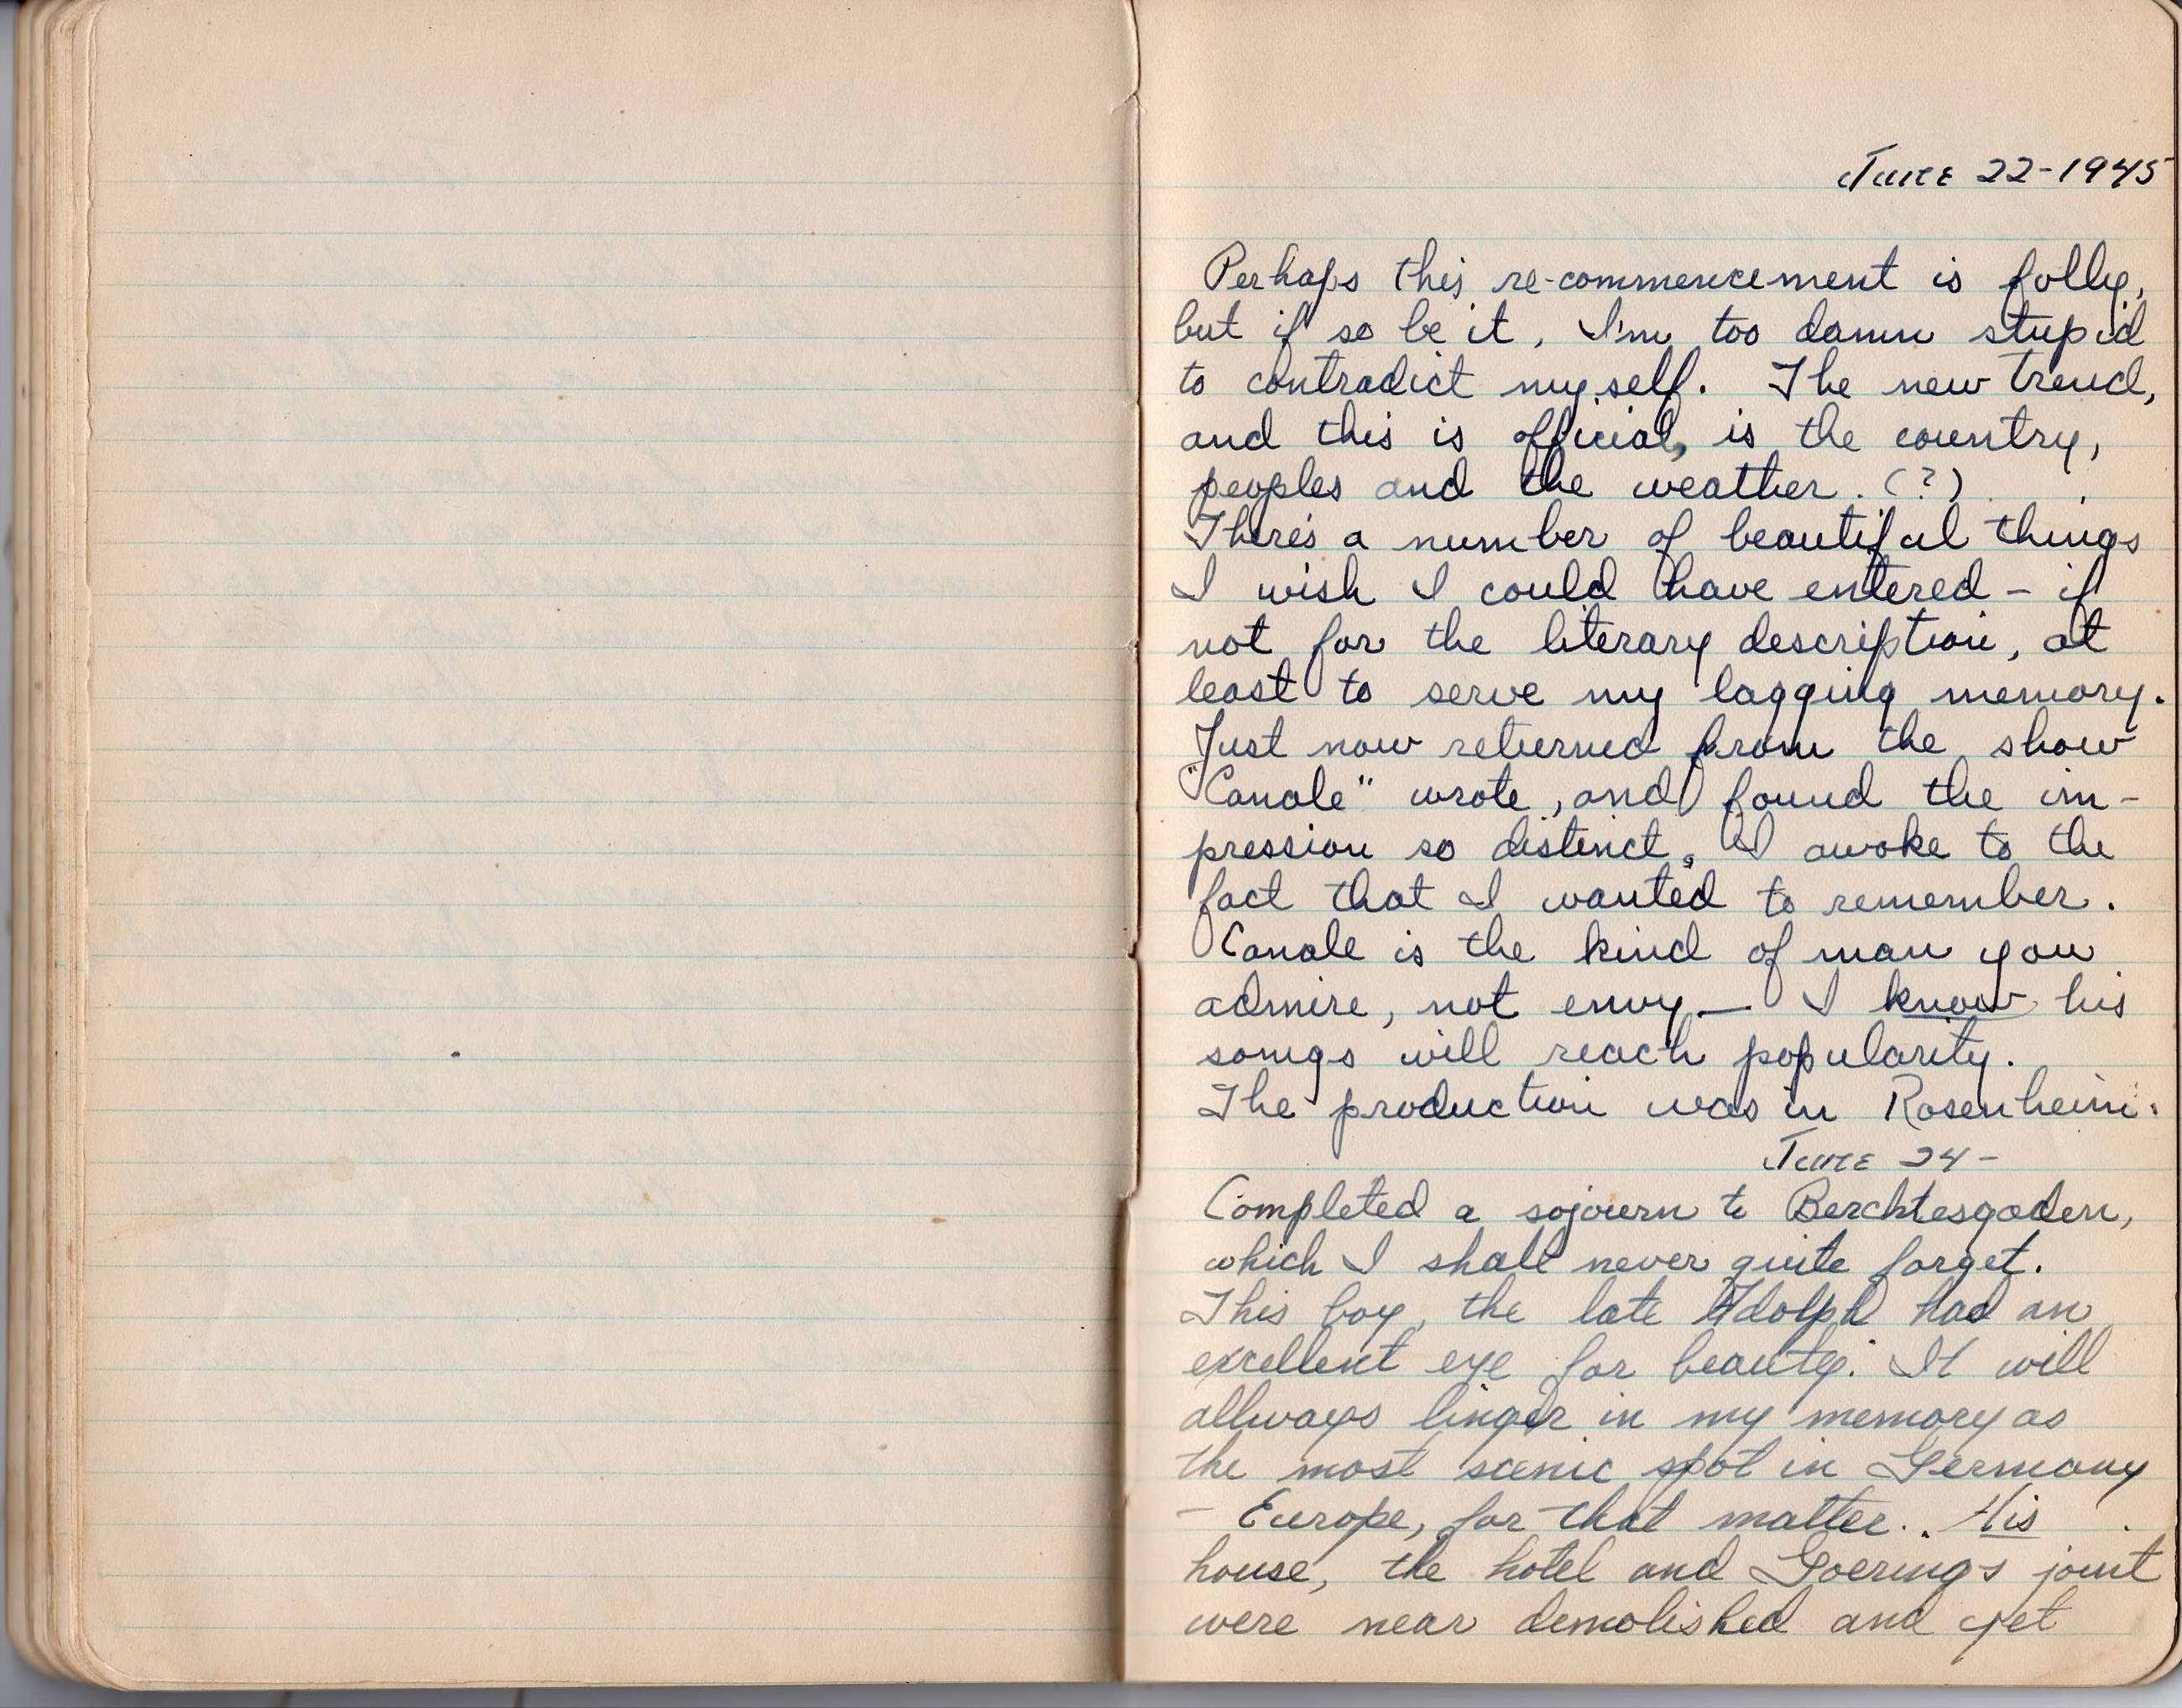 June 22-1945
Perhaps this re-commencement is folly,
but if so be it, I'm too damn stupid
to contradict myself. The new trend,
and this is official, is the country,
peoples and the weather. (?)
There's a number of beautiful things
I wish I could have entered - if
not for the literary description, at
least to serve my lagging memory.
Just now returned from the show
"Canale" wrote, and found the im-
pression so distinct, I awoke to the
fact that I wanted to remember.
Canale is the kind of man you
admire, not envy — I know his
songs will reach popularity.
The production was in Rosenheim.
June 24-
Completed a sojourn to Berchtesgaden,
which I shall never quite forget.
This boy, the late Adolph had an
excellent eye for beauty. It will
allways linger in my memory as
the most scenic spot in Germany
- Europe, for that matter.. His
house, the hotel and Goerings joint
were near demolished and yet